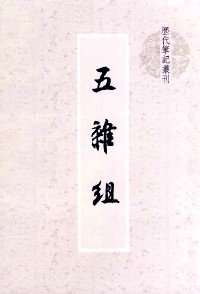 歷代筆記叢刊
五雜組